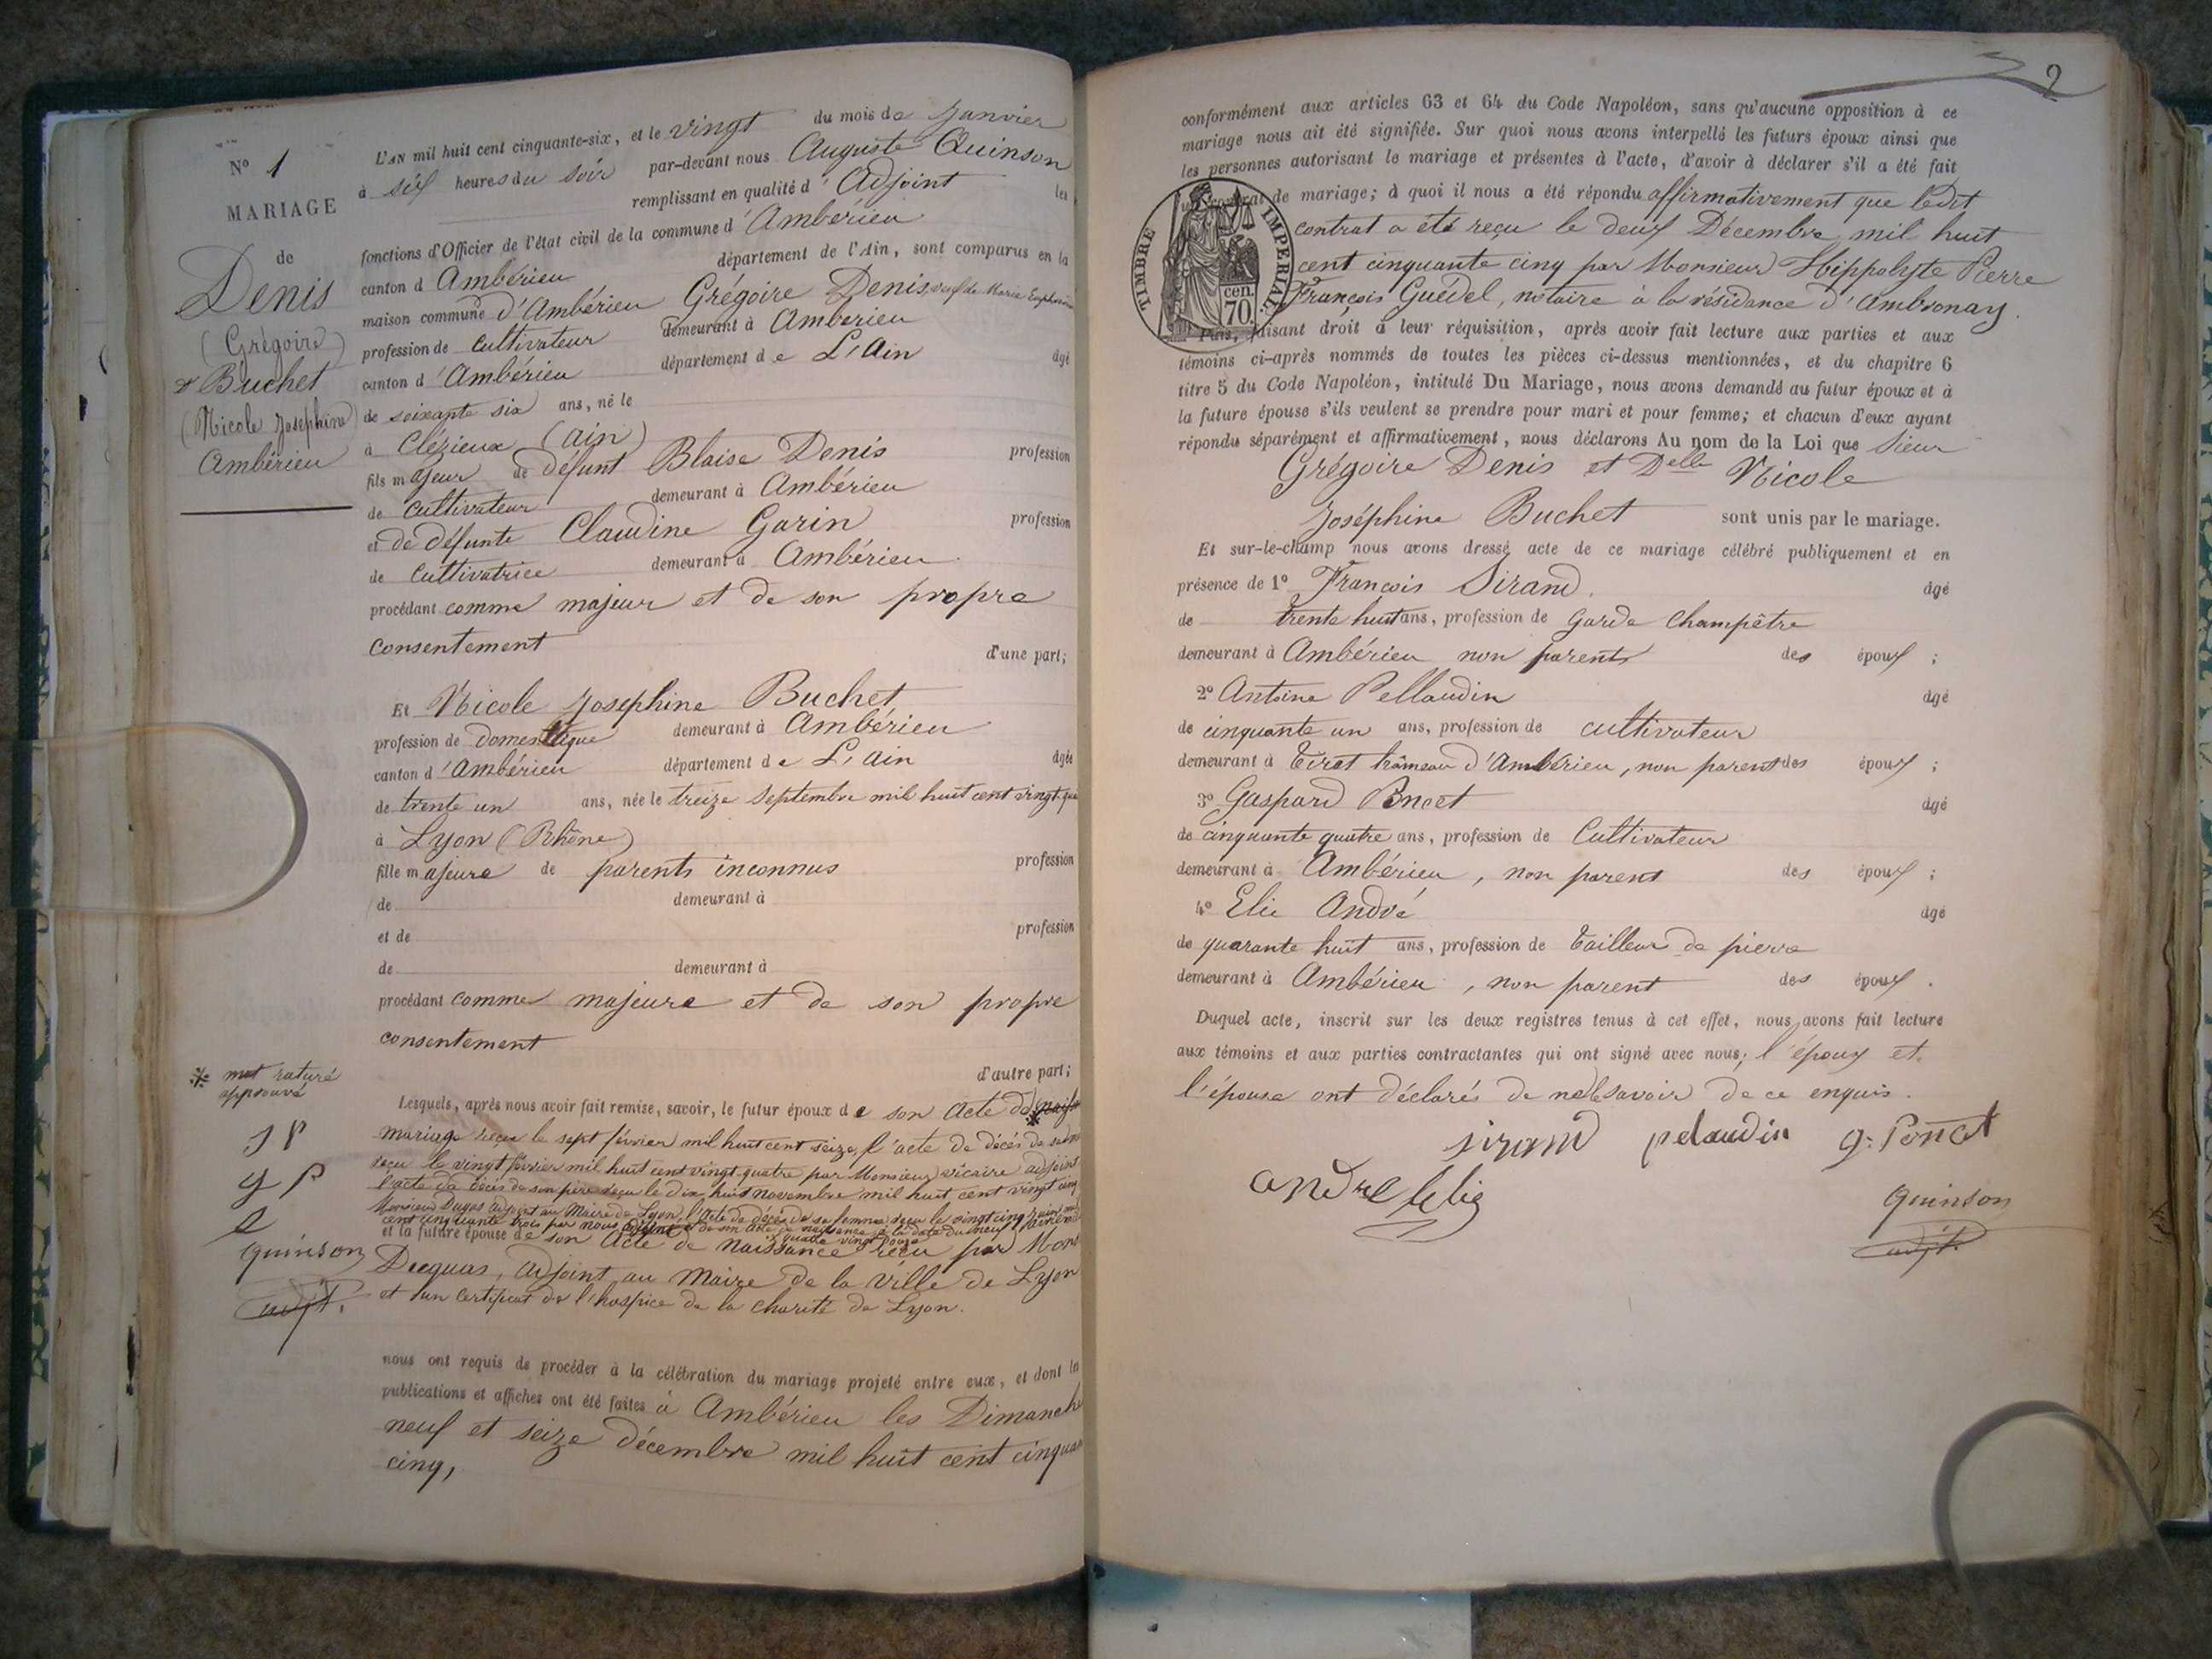 N° 1
MARIAGE
de
Denis
(Grégoire)
& Buchet
(Nicole Josephine)
Ambérieu
L'AN mil huit cent cinquante-six, et le vingt du mois de Janvier
à six heures du soir par-devant nous Auguste Quinson
remplissant en qualité d'Adjoint les
fonctions d'Officier de l'état civil de la commune d'Ambérieu
canton d Ambérieu département de l'Ain, sont comparus en la
maison commune d'Ambérieu Grégoire Denis, veuf de Marie
profession de cultivateur demeurant à Ambérieu
canton d'Ambérieu département de L'Ain âgé
de soixante six ans, né le
à Clézieux (Ain)
fils majeur de défunt Blaise Denis profession
de cultivateur demeurant à Ambérieu
et de défunte Claudine Garin profession
de Cultivatrice demeurant à Ambérieu
procédant comme majeur et de son propre
consentement d'une part;
Et Nicole Josephine Buchet
profession de domestique demeurant à Ambérieu
canton d'Ambérieu département de L'Ain âgée
de trente un ans, née le treize Septembre mil huit cent vingt
à Lyon (Rhône)
fille majeure de parents inconnus profession
de demeurant à
et de profession
de demeurant à
procédant comme majeure et de son propre
consentement
d'autre part;
* mot raturé
approuvé
Lesquels, après nous avoir fait remise, savoir, le futur époux de son acte de
mariage reçu le sept février mil huit cent seize, l'acte de décès de sa
reçu le vingt février mil huit cent vingt quatre par Monsieur vicaire adjoint
l'acte de décès de son père reçu le dix huit novembre mil huit cent vingt cinq
Monsieur Dugas adjoint au Maire de Lyon, l'acte de décès de sa femme, reçu le vingt cinq
cent cinquante trois par nous adjoint et de son acte de naissance à la date du neuf
quatre vingt
et la future épouse de son acte de naissance reçu par Mons
adjoint au Maire de la Ville de Lyon
et un certificat de l'hospice de la charité de Lyon.
J P
g P
e
quinson
adjt.
nous ont requis de procéder à la célébration du mariage projeté entre eux, et dont les
publications et affiches ont été faites à Ambérieu les Dimanche
neuf et seize décembre mil huit cent
cinq,
2
conformément aux articles 63 et 64 du Code Napoléon, sans qu'aucune opposition à ce
mariage nous ait été signifiée. Sur quoi nous avons interpellé les futurs époux ainsi que
les personnes autorisant le mariage et présentes à l'acte, d'avoir à déclarer s'il a été fait
un contrat de mariage; à quoi il nous a été répondu affirmativement que ledit
contrat a été reçu le deux Décembre mil huit
cent cinquante cinq par Monsieur Hippolyte Pierre
François Guédel, notaire à la résidance d'Ambronay.
TIMBRE IMPERIAL
cen.
70.
Puis, faisant droit à leur réquisition, après avoir fait lecture aux parties et aux
témoins ci-après nommés de toutes les pièces ci-dessus mentionnées, et du chapitre 6
titre 5 du Code Napoléon, intitulé Du Mariage, nous avons demandé au futur époux et à
la future épouse s'ils veulent se prendre pour mari et pour femme; et chacun d'eux ayant
répondu séparément et affirmativement, nous déclarons Au nom de la Loi que Sieur
Grégoire Denis et Delle Nicole
Joséphine Buchet sont unis par le mariage.
Et sur-le-champ nous avons dressé acte de ce mariage célébré publiquement et en
présence de 1° François Sirand, âgé
de trente huit ans, profession de Garde Champêtre
demeurant à Ambérieu non parents des époux ;
2° Antoine Pellaudin âgé
de cinquante un ans, profession de cultivateur
demeurant à Tiret hâmeau d'Ambérieu, non parent des époux ;
3° Gaspard âgé
de cinquante quatre ans, profession de Cultivateur
demeurant à Ambérieu, non parent des époux ;
4° Elie André âgé
de quarante huit ans, profession de Tailleur de pierre
demeurant à Ambérieu, non parent des époux .
Duquel acte, inscrit sur les deux registres tenus à cet effet, nous avons fait lecture
aux témoins et aux parties contractantes qui ont signé avec nous; l'époux et
l'épouse ont déclarés de ne le savoir de ce enquis.
sirand pelaudin g. Poncet
andre élie
quinson
adjt.